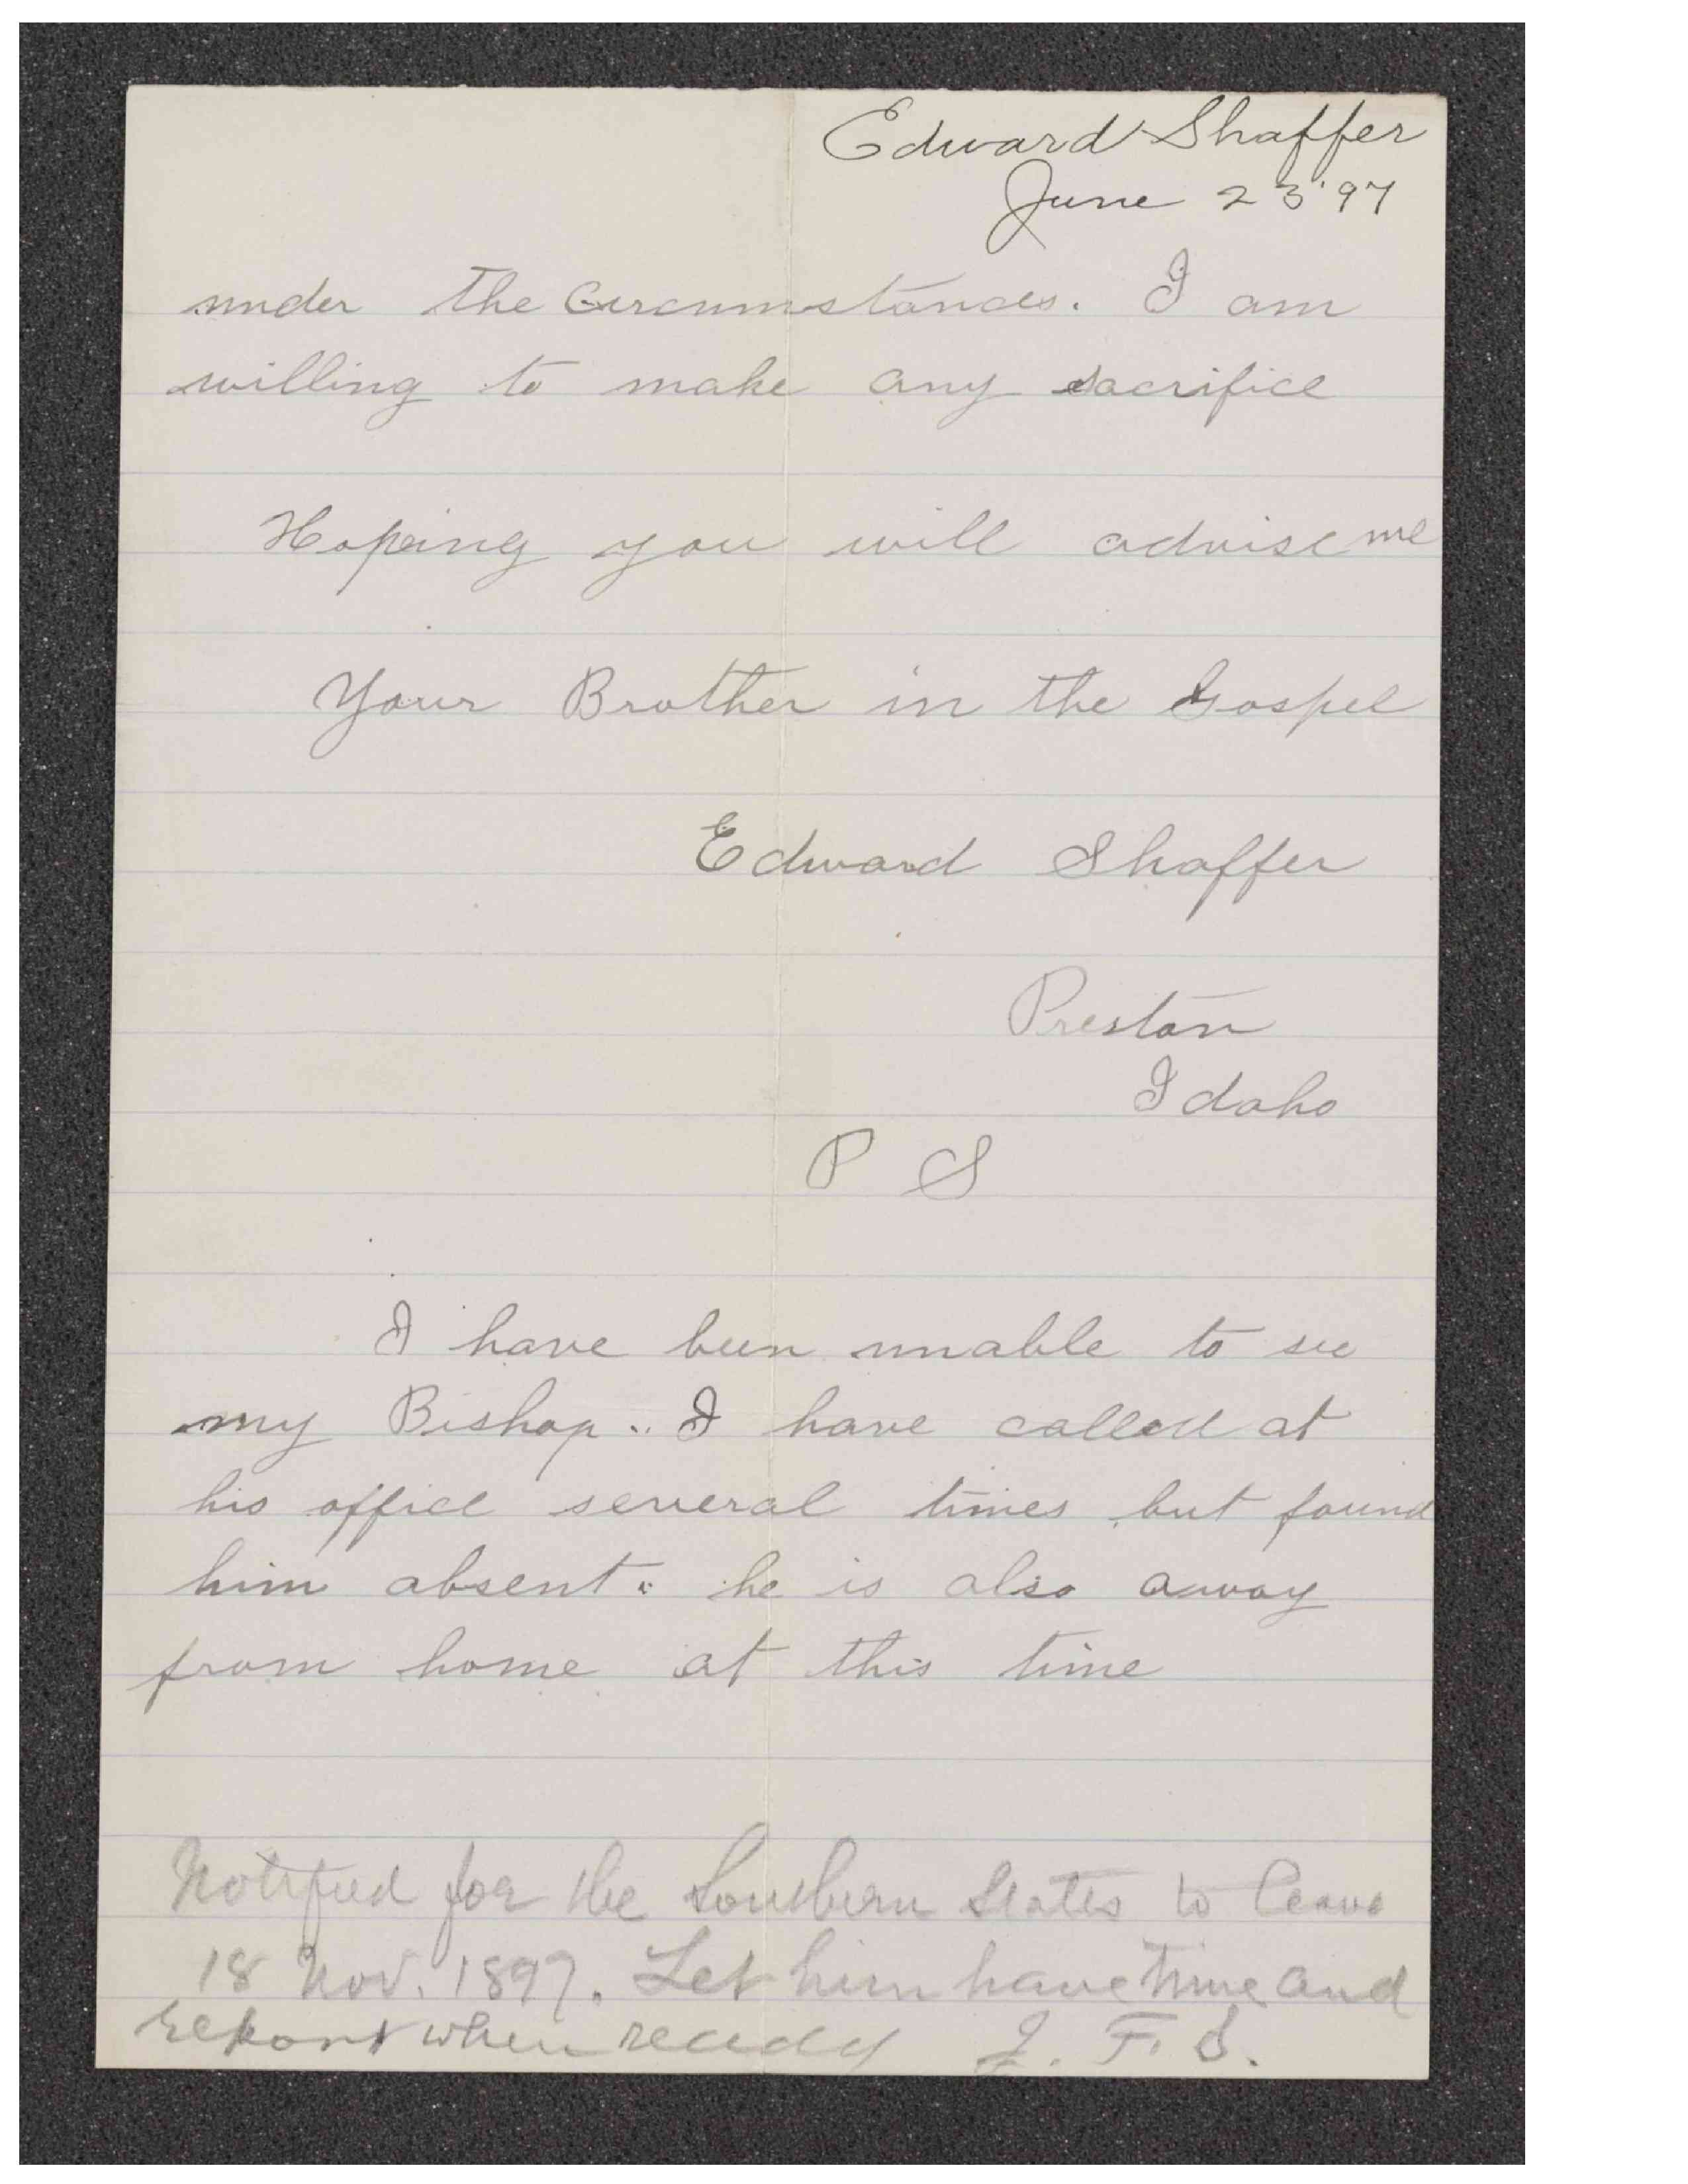 Edward Shaffer
June 23 '97
under the Circumstances. I am
willing to make any sacrifice
Hopeing you will advise me
Your Brother in the Gospel
Edward Shaffer
Preston
Idaho
P S
I have been unable to see
my Bishop.. I have called at
his office several times but found
him absent. he is also away
from home at this time
Notified for the Southern States to leave
18 Nov. 1897. Let him have time and
report when ready J. F. S.